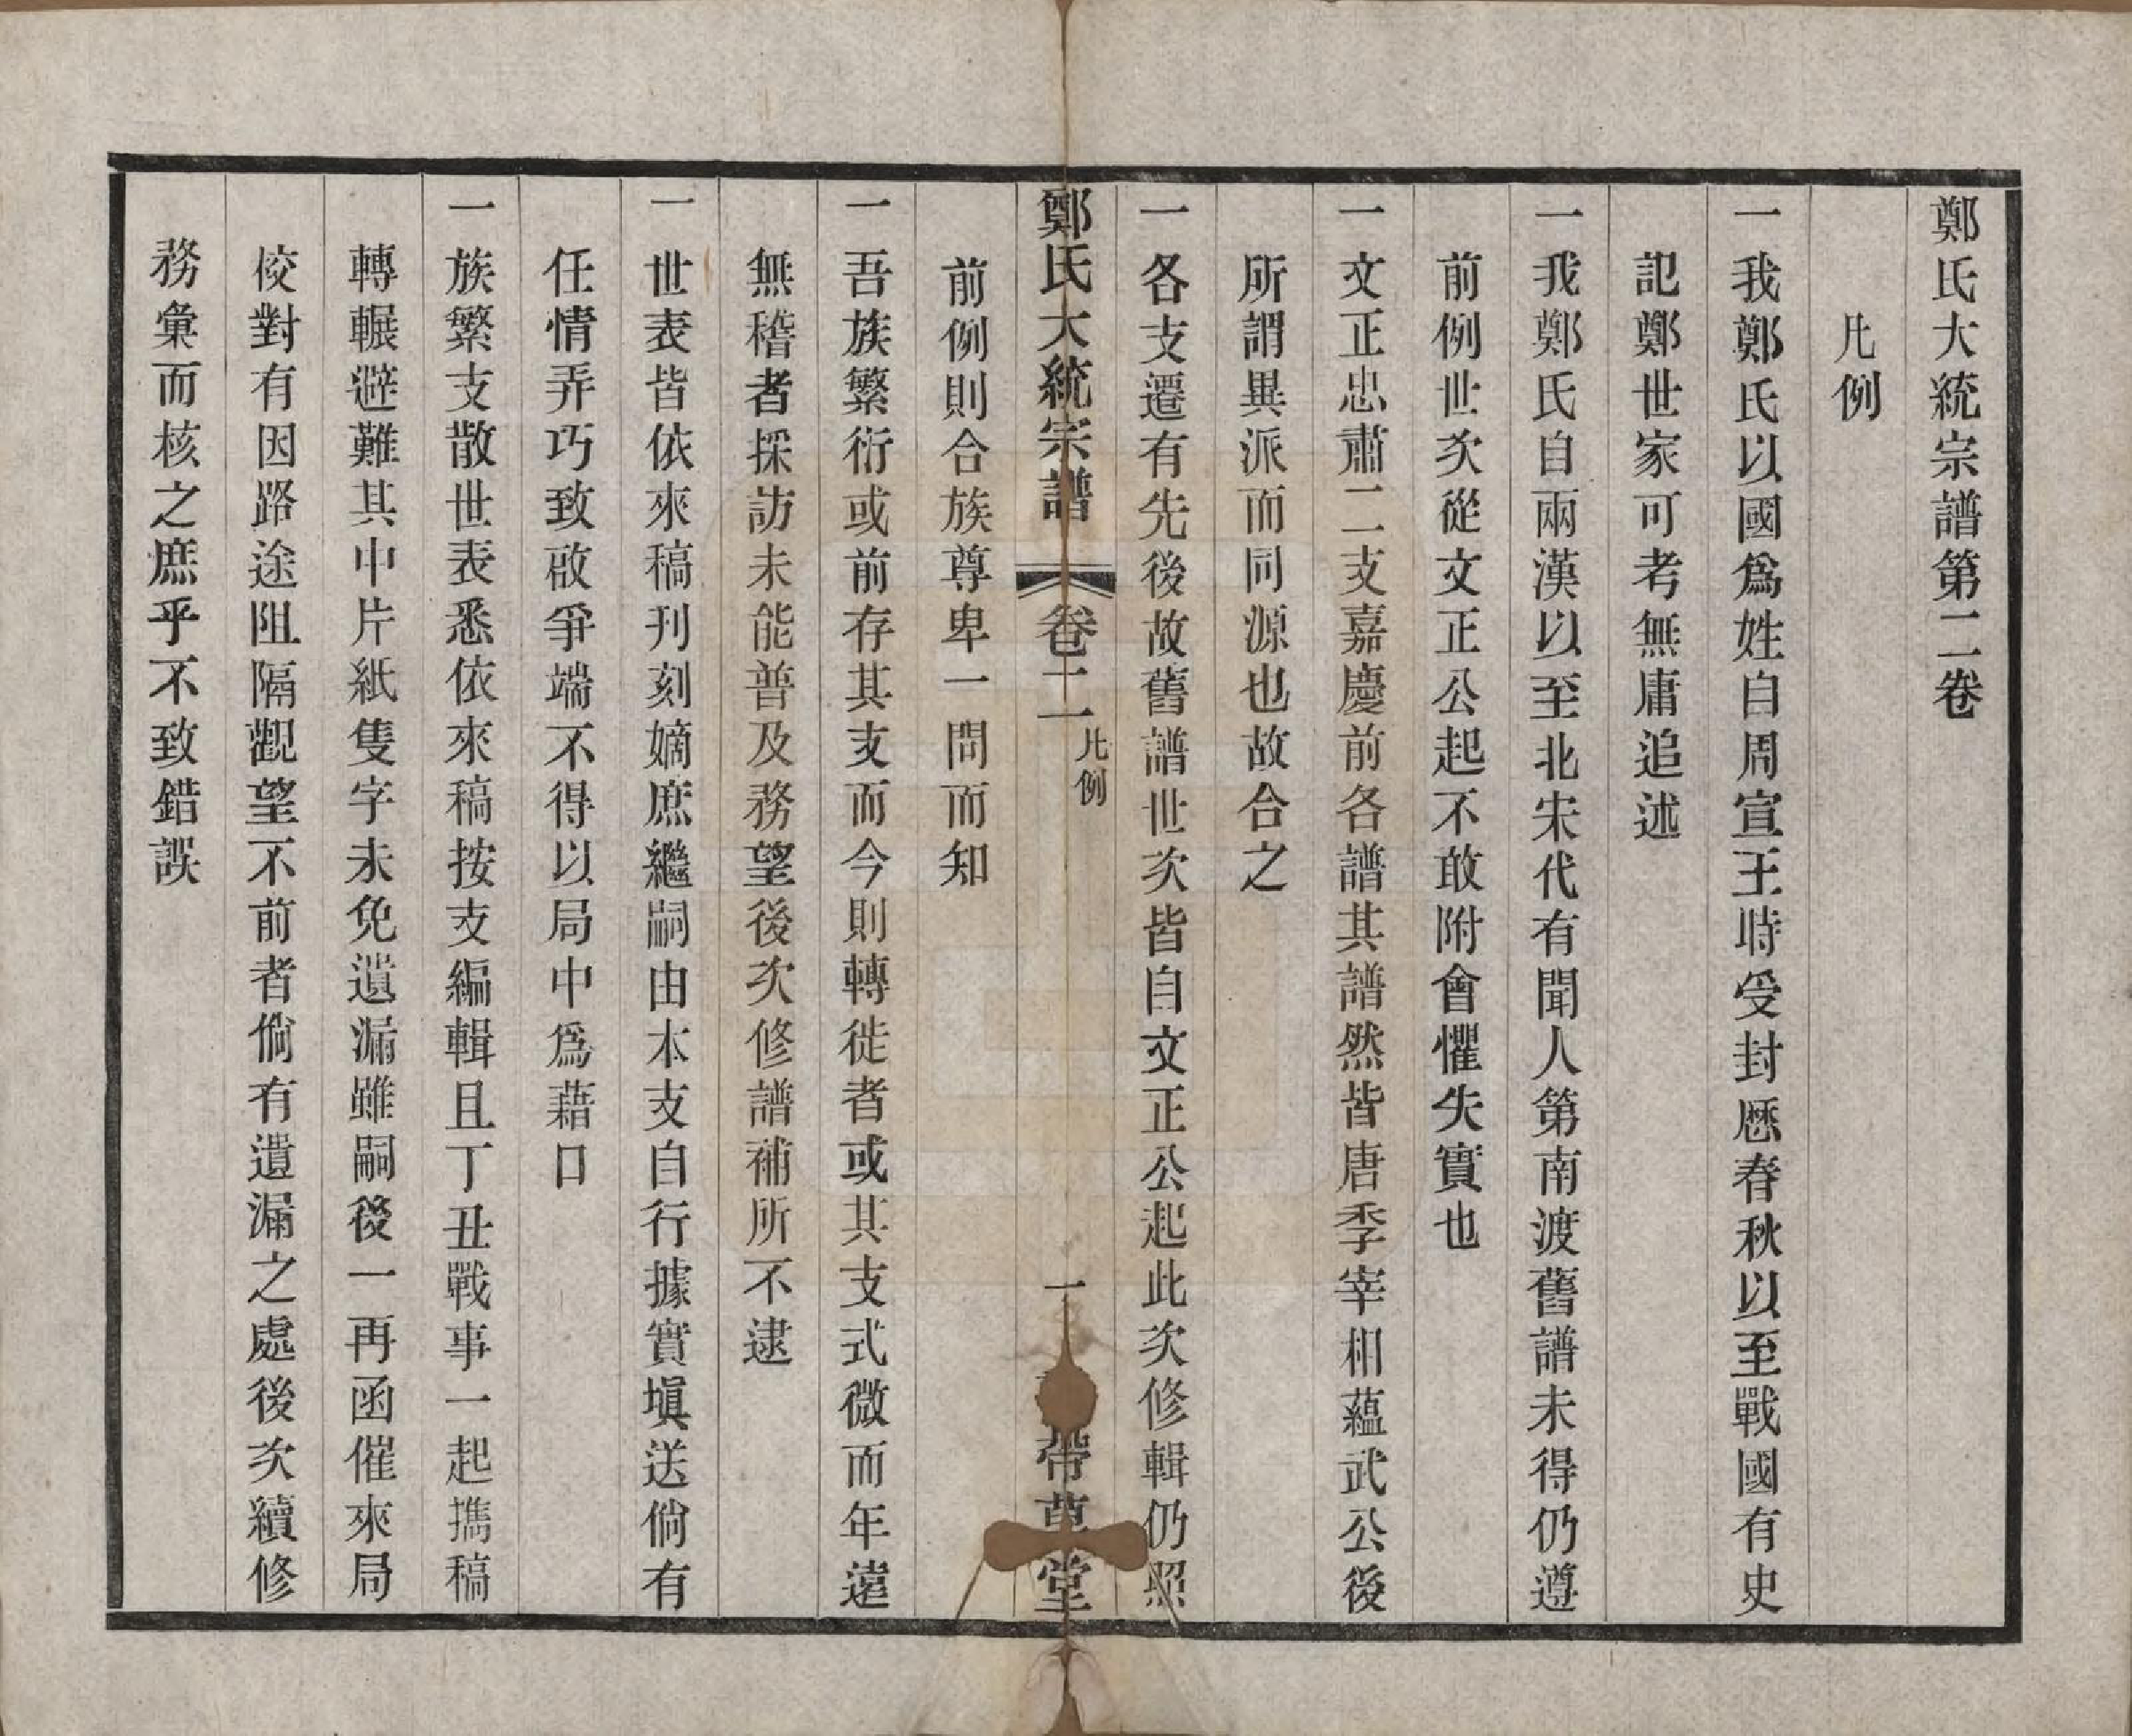 鄭氏大統宗譜第二卷
凡例
一我鄭氏以國爲姓自周宣王時受封歷春秋以至戰國有史
記鄭世家可考無庸追述
一我鄭氏自兩漢以至北宋代有聞人第南渡舊譜未得仍遵
前例世次從文正公起不敢附會懼失實也
一文正忠肅二支嘉慶前各譜其譜然皆唐季宰相蘊武公後
所謂異派而同源也故合之
一各支遷有先後故舊譜世次皆自文正公起此次修輯仍照
鄭氏大統宗譜 卷二 凡例 一 帶草堂
前例則合族尊卑一問而知
一吾族繁衍或前存其支而今則轉徙者或其支式微而年遠
無稽者採訪未能普及務望後次修譜補所不逮
一世表皆依來稿刊刻嫡庶繼嗣由本支自行據實塡送倘有
任情弄巧致啟爭端不得以局中爲藉口
一族繁支散世表悉依來稿按支編輯且丁丑戰事一起擕稿
轉輾避難其中片紙隻字未免遺漏雖嗣後一再函催來局
校對有因路途阻隔觀望不前者倘有遺漏之處後次續修
務彙而核之庶乎不致錯誤